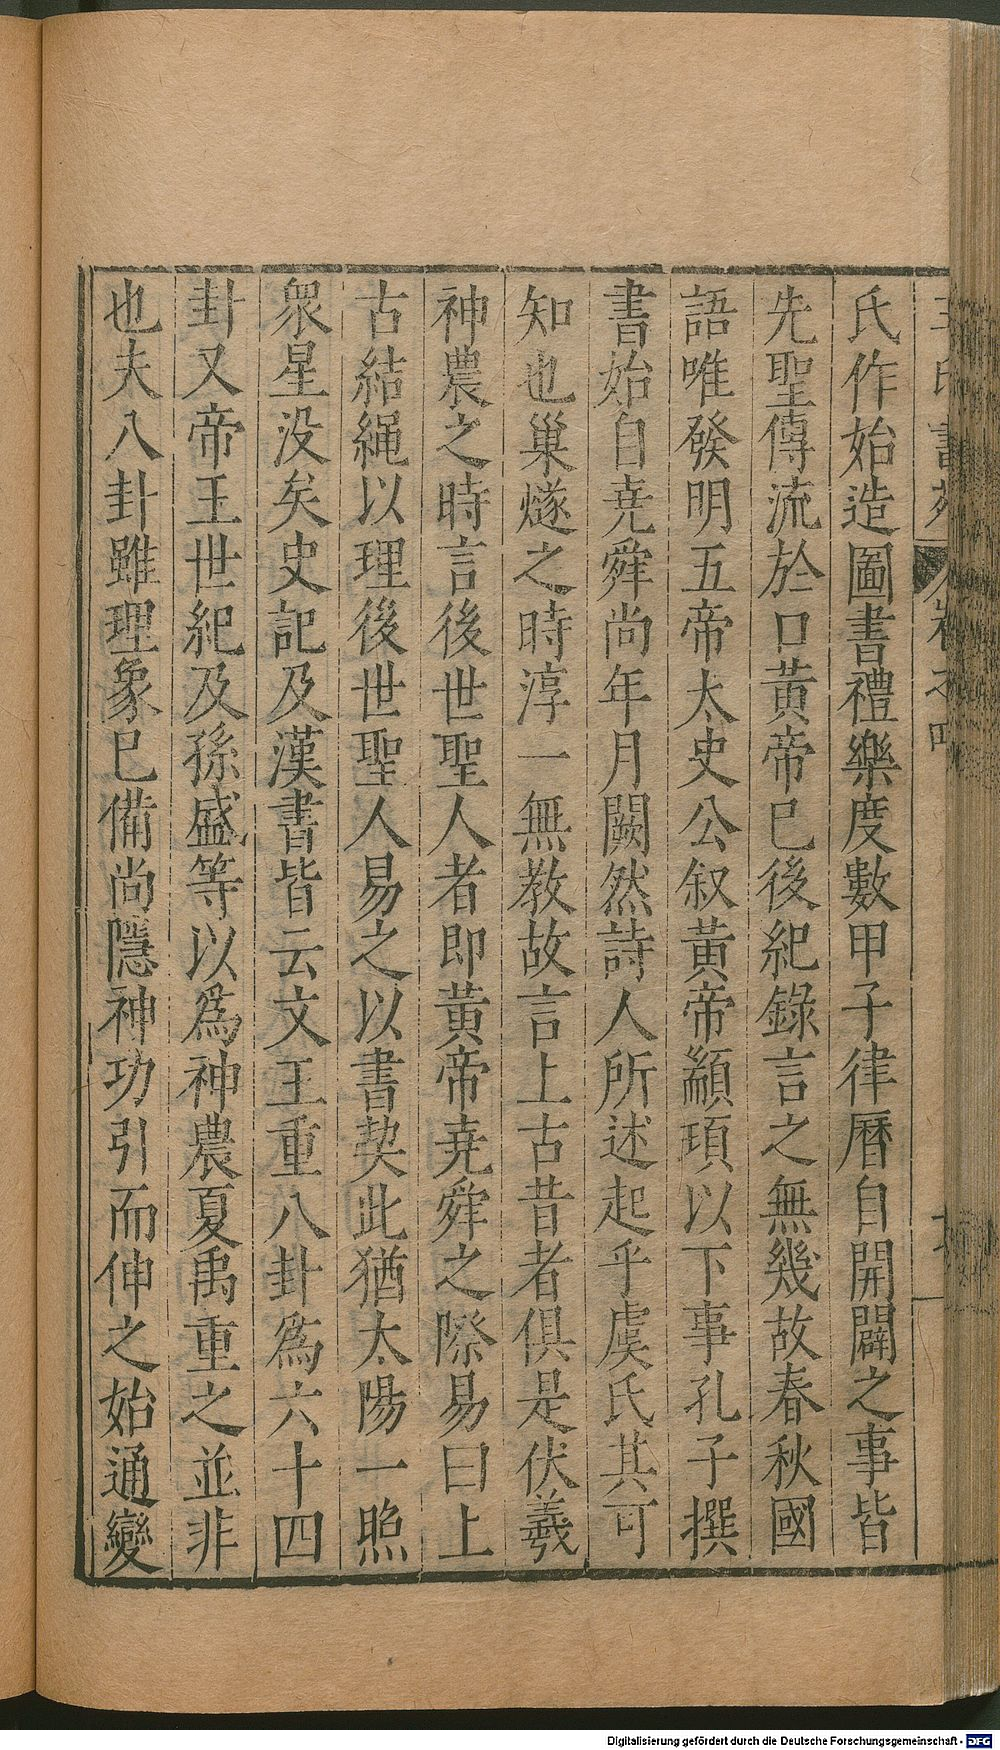 王氏書苑 卷之四
氏作始造圖書禮樂度數甲子律曆自開闢之事皆
先聖傳流於口黃帝已後紀錄言之無幾故春秋國
語唯發明五帝太史公叙黃帝顓頊以下事孔子撰
書始自堯舜尚年月闕然詩人所述起乎虞氏其可
知也巢燧之時淳一無教故言上古昔者俱是伏羲
神農之時言後世聖人者即黃帝堯舜之際易曰上
古結繩以理後世聖人易之以書契此猶太陽一照
衆星没矣史記及漢書皆云文王重八卦為六十四
卦又帝王世紀及孫盛等以為神農夏禹重之並非
也夫八卦雖理象已備尚隱神功引而伸之始通變
Digitalisierung gefördert durch die Deutsche Forschungsgemeinschaft - DFG